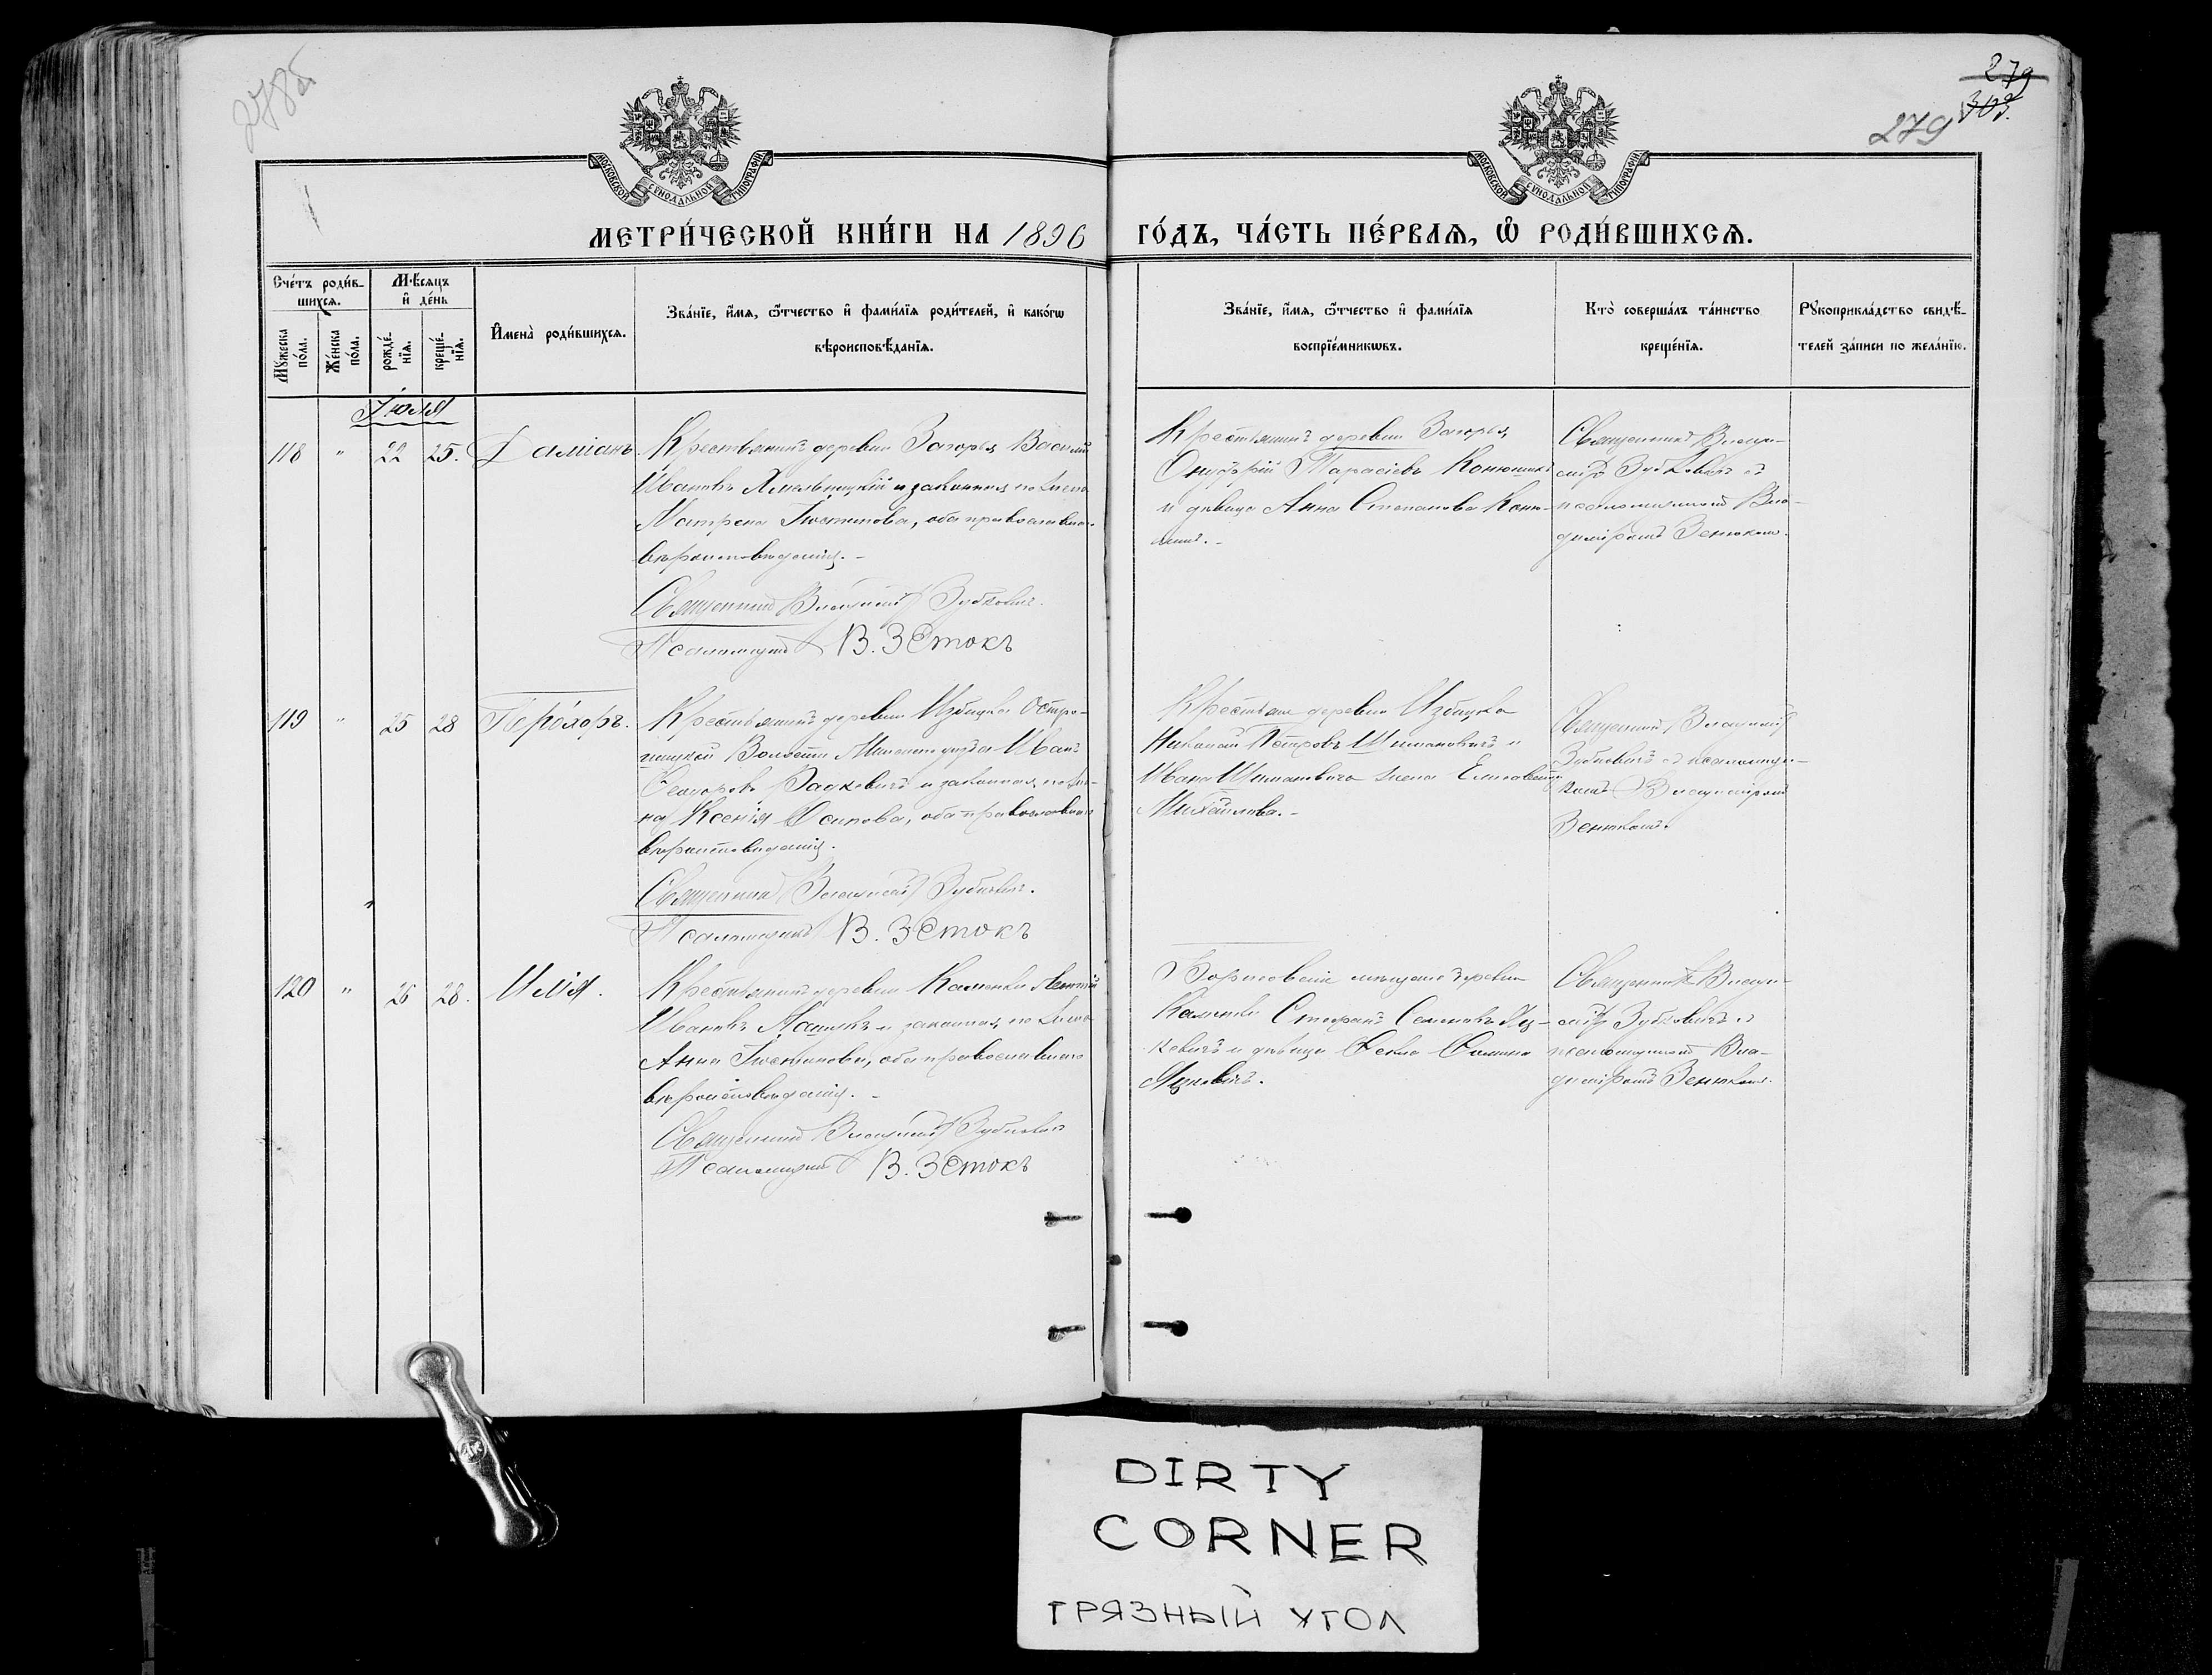 278об
279
303.
279
МОСКОВСКОЙ СѴНОДАЛЬНОЙ ТИПОГРАФІИ
МОСКОВСКОЙ СѴНОДАЛЬНОЙ ТИПОГРАФІИ
МЕТРИ́ЧЕСКОЙ КНИ́ГИ НА 1896 ГО́ДЪ, ЧА́СТЬ ПЕ́РВАѦ, Ѡ РОДИ́ВШИХСѦ.
Сче́тъ роди́в-
шихсѧ.
Мѣ́сѧцъ
и҆ де́нь
Мꙋ́жеска
по́ла.
Же́нска
по́ла.
рожде́-
нїѧ.
креще́-
нїѧ.
И҆мена̀ роди́вшихсѧ.
Зва́нїе, и҆́мѧ, ѻ҆́тчество и҆ фами́лїѧ роди́телей, и҆ како́гѡ
вѣроисповѣ́данїѧ.
Зва́нїе, и҆́мѧ, ѻ҆́тчество и҆ фами́лїѧ
воспрїе́мникѡвъ.
Кто̀ соверша́лъ та́инство
креще́нїѧ.
Рꙋкоприкла́дство свидѣ́-
телей за́писи по жела́нїю.
Іюля
118 " 22 25. Даміанъ.
Крестьянинъ деревни Загорья Василій
Ивановъ Хмельницкій и законная его жена
Матрена Іустинова, оба православнаго
вѣроисповѣданія. -
Священникъ Владиміръ Зубковичъ.
Псаломщикъ В. Зенюкъ
Крестьянинъ деревни Загорья,
Онуфрій Тарасіевъ Конюшикъ
и дѣвица Анна Степанова Коню-
шикъ. -
Священникъ Влади-
міръ Зубковичъ съ
псаломщикомъ Вла-
диміромъ Зенюкомъ.
119 " 25 28 Ѳеодоръ.
Крестьянинъ деревни Избицка Остро-
шицкой Волости Минскаго уѣзда Иванъ
Ѳеодоровъ Вадковичъ и законная его же-
на Ксенія Осипова, оба православнаго
вѣроисповѣданія.
Священникъ Владиміръ Зубковичъ.
Псаломщикъ В. Зенюкъ
Крестьяне деревни Избицка
Николай Петровъ Шимановичъ и
Ивана Шимановича жена Елисавета
Михайлова. -
Священникъ Владиміръ
Зубковичъ съ псаломщи-
комъ Владиміромъ
Зенюкомъ.
120 " 26 28. Илія.
Крестьянинъ деревни Каменки Леонтій
Ивановъ и законная его жена
Анна Іустинова, оба православнаго
вѣроисповѣданія. -
Священникъ Владиміръ Зубковичъ
Псаломщикъ В. Зенюкъ
Борисовскіе мѣщане деревни
Каменки Стефанъ Семеновъ Яц-
кевичъ и дѣвица Ѳекла Ѳомина
Яцкевичъ.
Священникъ Влади-
міръ Зубковичъ съ
псаломщикомъ Вла-
диміромъ Зенюкомъ.
DIRTY
CORNER
ГРЯЗНЫЙ УГОЛ